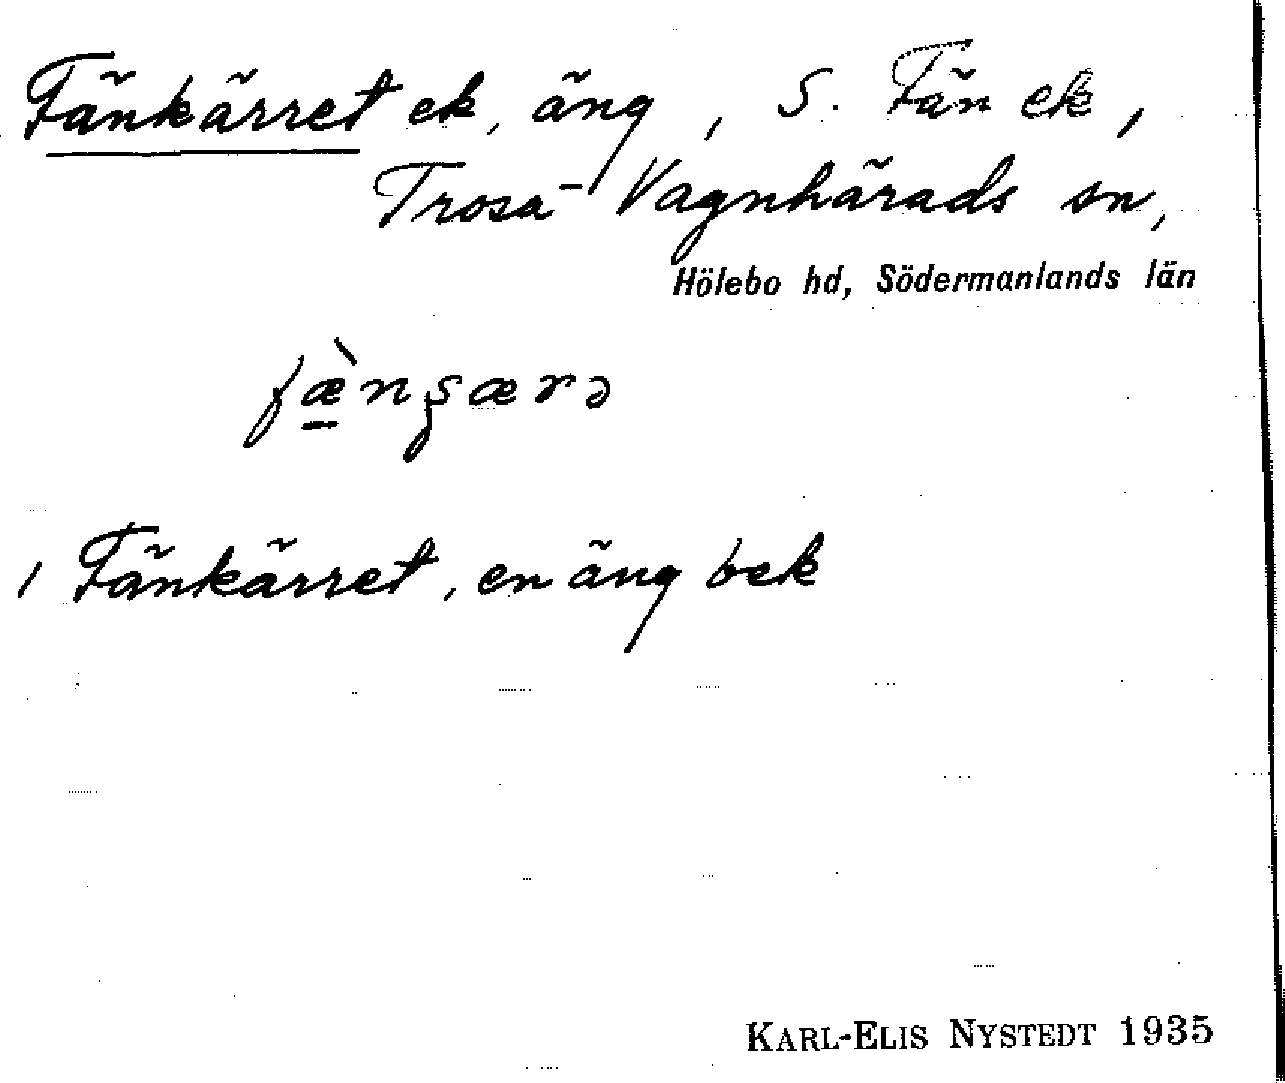 Fänkärret ek, äng, S. Fän ek,
Trosa-Vagnhärads sn,
Hölebo hd, Södermanlands län
fæ̀nʂærə
1 Fänkärret, en äng bek
KARL-ELIS NYSTEDT 1935